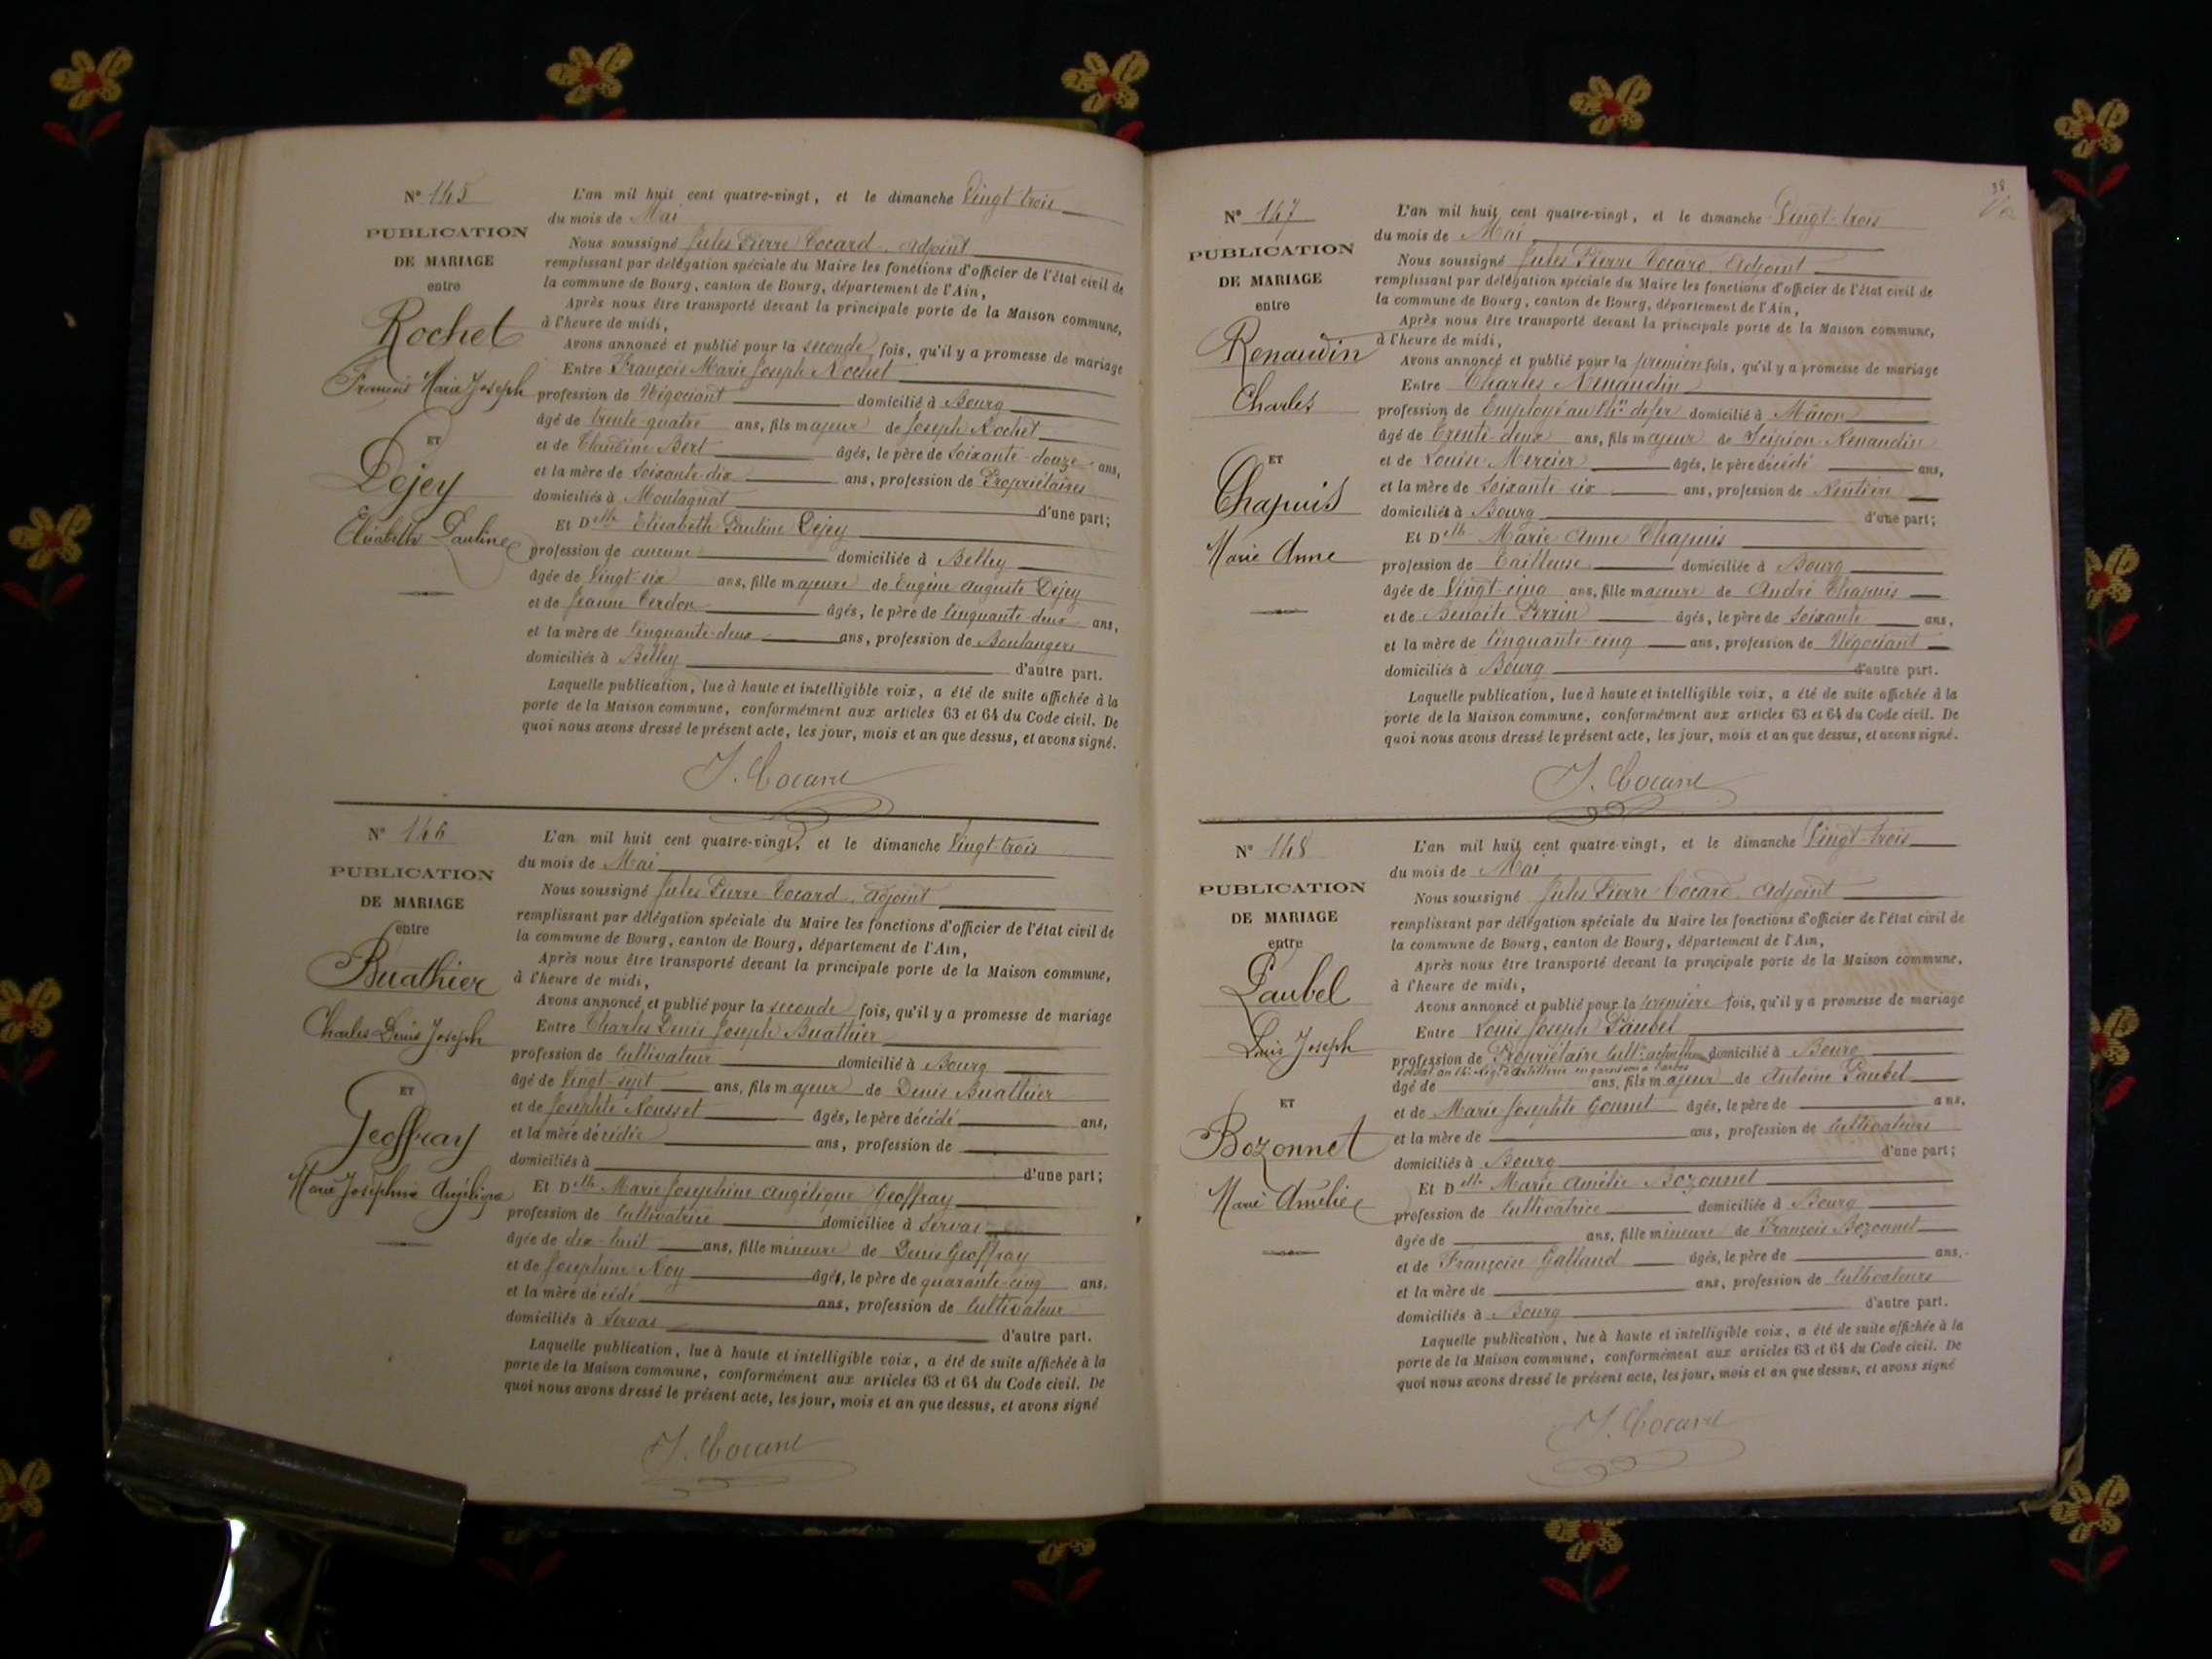 N° 145
PUBLICATION
DE MARIAGE
entre
Rochet
François Marie Joseph
ET
Dejey
Elisabeth Pauline
L'an mil huit cent quatre-vingt, et le dimanche Vingt-trois
du mois de Mai
Nous soussigné Jules Pierre Cocard, Adjoint
remplissant par délégation spéciale du Maire les fonctions d'officier de l'état civil de
la commune de Bourg, canton de Bourg, département de l'Ain,
Après nous être transporté devant la principale porte de la Maison commune,
à l'heure de midi,
Avons annoncé et publié pour la seconde fois, qu'il y a promesse de mariage
Entre François Marie Joseph Rochet
profession de Négociant domicilié à Bourg
âgé de trente-quatre ans, fils majeur de Joseph Rochet
et de Claudine Bert âgés, le père de soixante-douze ans,
et la mère de soixante-dix ans, profession de Propriétaires
domiciliés à Montagnat d'une part;
Et Delle Elisabeth Pauline Dejey
profession de aucune domiciliée à Belley
âgée de Vingt-six ans, fille majeure de Eugène Auguste Dejey
et de Jeanne Cerdon âgés, le père de Cinquante-deux ans,
et la mère de Cinquante-deux ans, profession de Boulangers
domiciliés à Belley d'autre part.
Laquelle publication, lue à haute et intelligible voix, a été de suite affichée à la
porte de la Maison commune, conformément aux articles 63 et 64 du Code civil. De
quoi nous avons dressé le présent acte, les jour, mois et an que dessus, et avons signé.
J. Cocard
N° 146
PUBLICATION
DE MARIAGE
entre
Buathier
Charles Denis Joseph
ET
Geoffray
Marie Joséphine Angélique
L'an mil huit cent quatre-vingt, et le dimanche Vingt-trois
du mois de Mai
Nous soussigné Jules Pierre Cocard, Adjoint
remplissant par délégation spéciale du Maire les fonctions d'officier de l'état civil de
la commune de Bourg, canton de Bourg, département de l'Ain,
Après nous être transporté devant la principale porte de la Maison commune,
à l'heure de midi,
Avons annoncé et publié pour la seconde fois, qu'il y a promesse de mariage
Entre Charles Denis Joseph Buathier
profession de Cultivateur domicilié à Bourg
âgé de Vingt-sept ans, fils majeur de Denis Buathier
et de Josephte Rousset âgés, le père décédé ans,
et la mère décédée ans, profession de
domiciliés à d'une part;
Et Delle Marie Joséphine Angélique Geoffray
profession de Cultivatrice domiciliée à Servas
âgée de dix-huit ans, fille mineure de Denis Geoffray
et de Joséphine Roy âgés, le père de quarante-cinq ans,
et la mère décédé ans, profession de Cultivateur
domiciliés à Servas d'autre part.
Laquelle publication, lue à haute et intelligible voix, a été de suite affichée à la
porte de la Maison commune, conformément aux articles 63 et 64 du Code civil. De
quoi nous avons dressé le présent acte, les jour, mois et an que dessus, et avons signé
J. Cocard
38
N° 147
PUBLICATION
DE MARIAGE
entre
Renaudin
Charles
ET
Chapuis
Marie Anne
L'an mil huit cent quatre-vingt, et le dimanche Vingt-trois
du mois de Mai
Nous soussigné Jules Pierre Cocard, Adjoint
remplissant par délégation spéciale du Maire les fonctions d'officier de l'état civil de
la commune de Bourg, canton de Bourg, département de l'Ain,
Après nous être transporté devant la principale porte de la Maison commune,
à l'heure de midi,
Avons annoncé et publié pour la première fois, qu'il y a promesse de mariage
Entre Charles Renaudin
profession de Employé au Chin de fer domicilié à Mâcon
âgé de Trente-deux ans, fils majeur de Scipion Renaudin
et de Louise Mercier âgés, le père décédé ans,
et la mère de Soixante-six ans, profession de Rentière
domiciliés à Bourg d'une part;
Et Delle Marie Anne Chapuis
profession de Tailleuse domiciliée à Bourg
âgée de Vingt-cinq ans, fille majeure de André Chapuis
et de Benoite Perrin âgés, le père de Soixante ans,
et la mère de Cinquante-cinq ans, profession de Négociant
domiciliés à Bourg d'autre part.
Laquelle publication, lue à haute et intelligible voix, a été de suite affichée à la
porte de la Maison commune, conformément aux articles 63 et 64 du Code civil. De
quoi nous avons dressé le présent acte, les jour, mois et an que dessus, et avons signé.
J. Cocard
N° 148
PUBLICATION
DE MARIAGE
entre
Paubel
Louis Joseph
ET
Bozonnet
Marie Amélie
L'an mil huit cent quatre-vingt, et le dimanche Vingt-trois
du mois de Mai
Nous soussigné Jules Pierre Cocard, Adjoint
remplissant par délégation spéciale du Maire les fonctions d'officier de l'état civil de
la commune de Bourg, canton de Bourg, département de l'Ain,
Après nous être transporté devant la principale porte de la Maison commune,
à l'heure de midi,
Avons annoncé et publié pour la première fois, qu'il y a promesse de mariage
Entre Louis Joseph Paubel
profession de Propriétaire Cultr domicilié à Bourg
soldat au Régt d'artillerie en garnison à Tarbes
âgé de ans, fils majeur de Antoine Paubel
et de Marie Josephte Gonnet âgés, le père de ans,
et la mère de ans, profession de Cultivateurs
domiciliés à Bourg d'une part;
Et Delle Marie Amélie Bozonnet
profession de Cultivatrice domiciliée à Bourg
âgée de ans, fille mineure de François Bozonnet
et de Françoise Galland âgés, le père de ans,
et la mère de ans, profession de Cultivateurs
domiciliés à Bourg d'autre part.
Laquelle publication, lue à haute et intelligible voix, a été de suite affichée à la
porte de la Maison commune, conformément aux articles 63 et 64 du Code civil. De
quoi nous avons dressé le présent acte, les jour, mois et an que dessus, et avons signé
J. Cocard